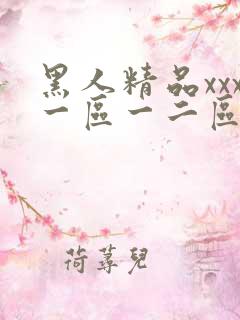 黑人精品xxx
一區一二區
荷䔵兒